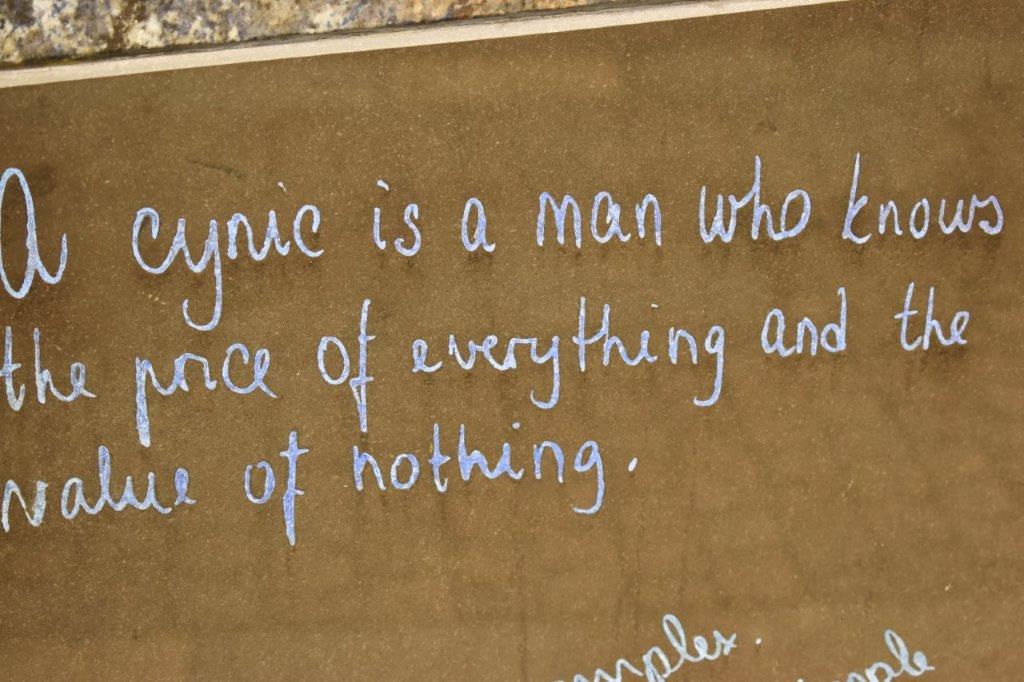 A cynic is a man who knows
the price of everything and the
value of nothing.